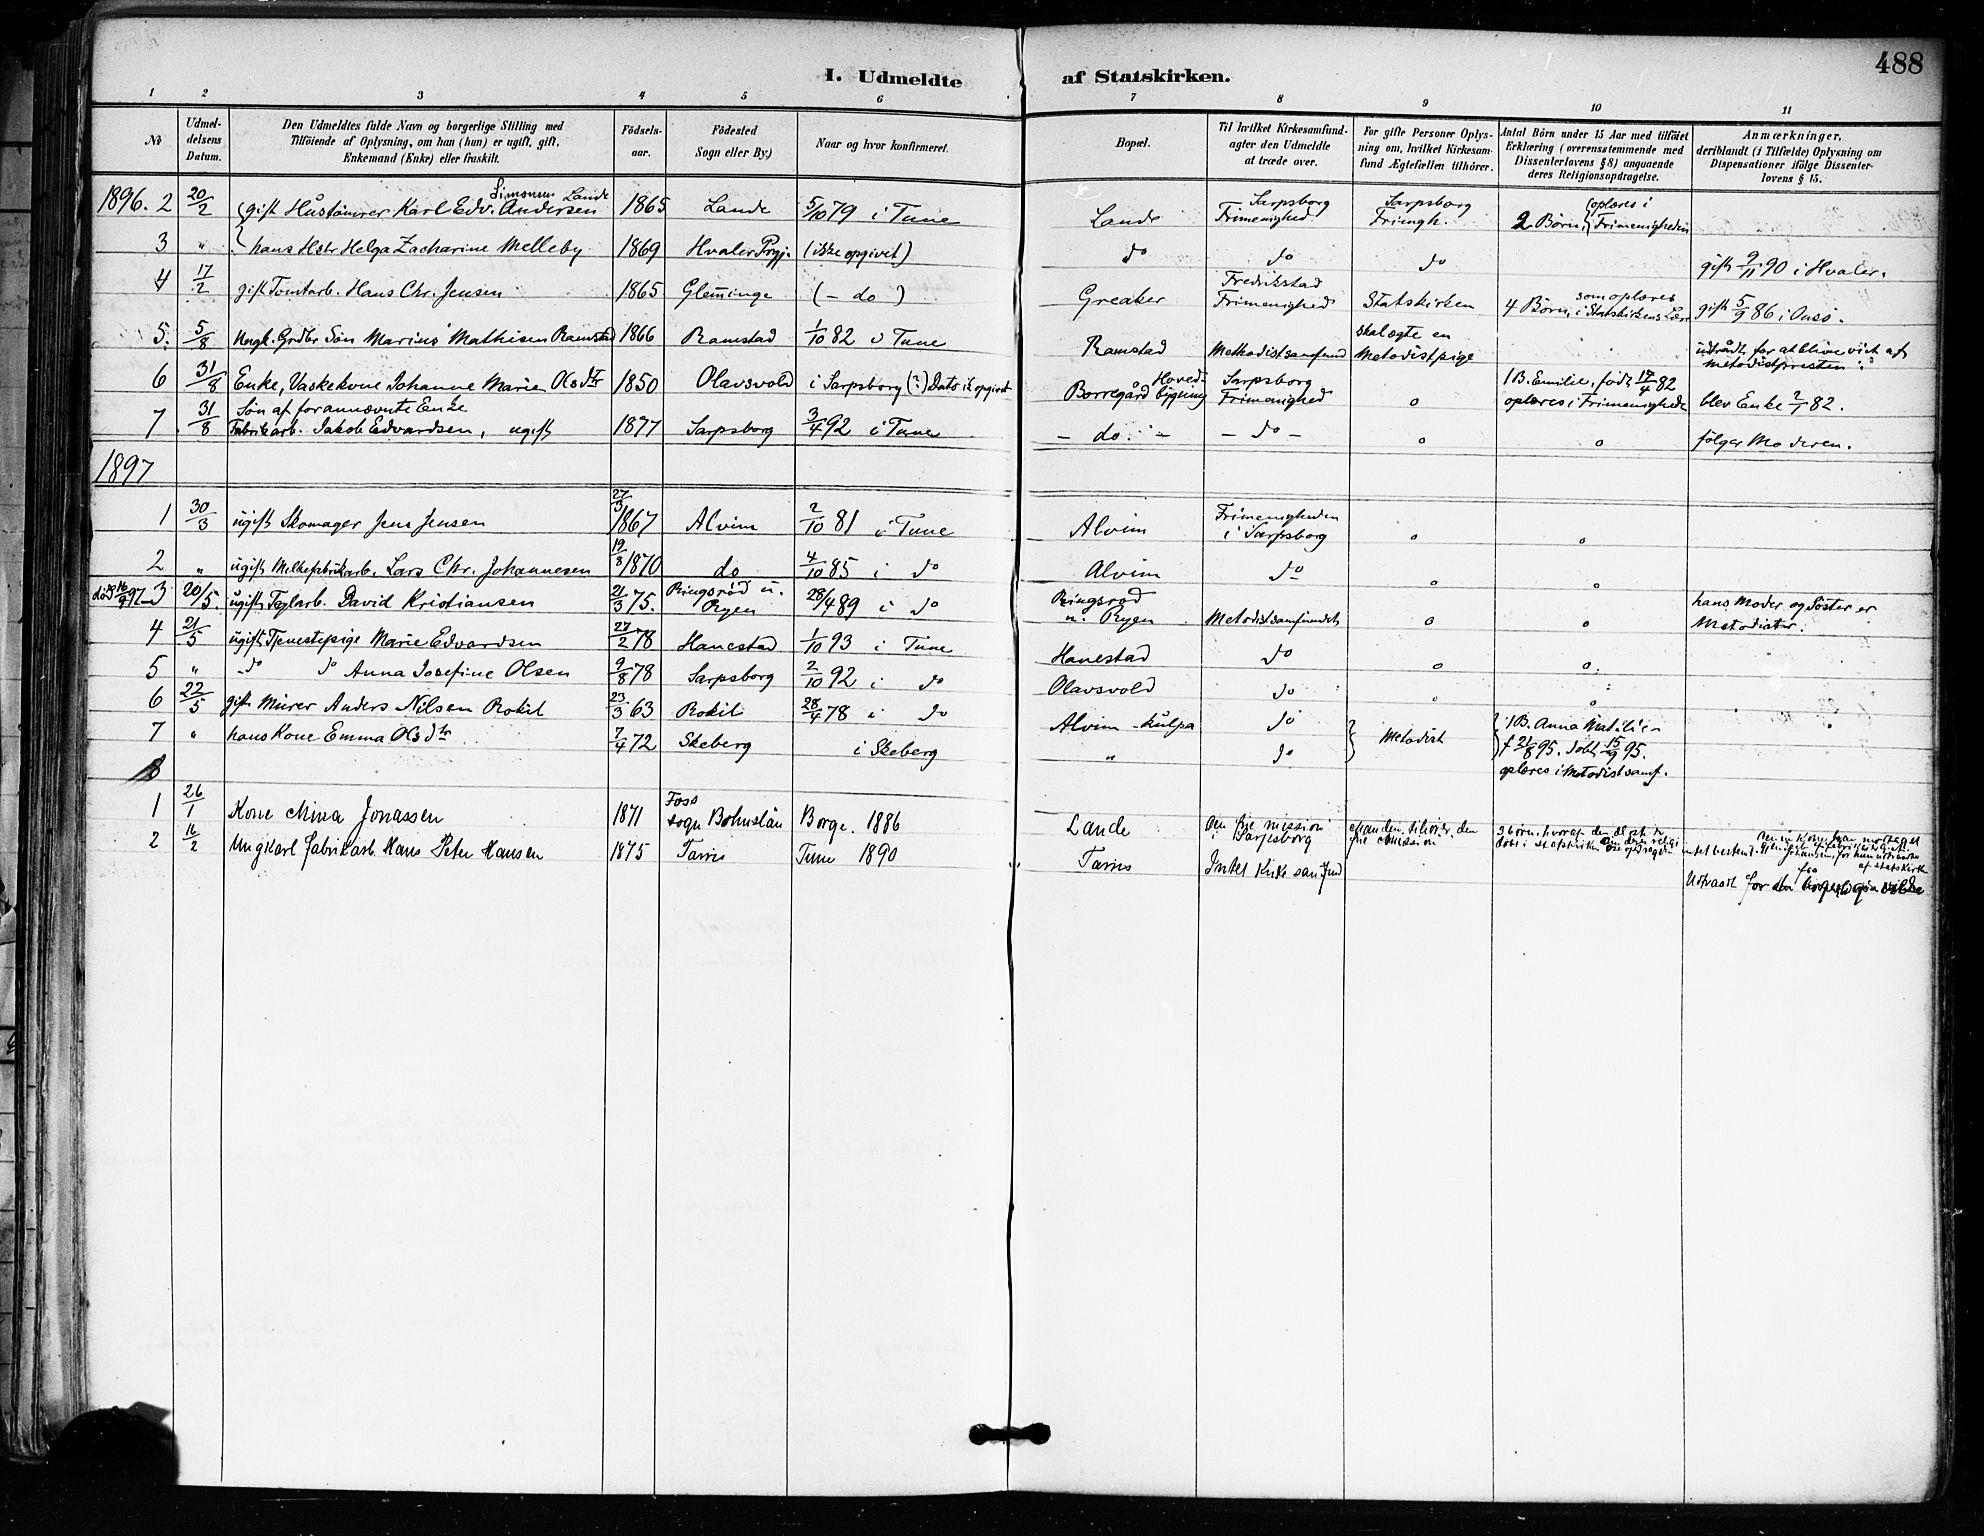 488
I. Udmeldte af Statskirken.
1 2 3 4 5 6 7 8 9 10 11
No
Udmeldelsens Datum.
Den Udmeldtes fulde Navn og borgerlige Stilling med
Tilføiende af Oplysning, om han (hun) er ugift, gift,
Enkemand (Enke) eller fraskilt.
Fødselsaar.
Fødested
Sogn eller By.)
Naar og hvor konfirmeret.
Bopæl.
Til hvilket Kirkesamfund-
agter den Udmeldte
at træde over.
For gifte Personer Oplys-
ning om, hvilket Kirkesam-
fund Ægtefællen tilhører.
Antal Børn under 15 Aar med tilføiet
Erklæring (overensstemmende med
Dissenterlovens § 8) angaaende
deres Religionsopdragelse.
Anmærkninger,
deriblandt (i Tilfælde) Oplysning om
Dispensationer ifølge Dissenter-
lovens § 15.
1896. 2 20/2 gift Hustømrer Karl Edv. Simonsen Lande Andersen 1865 Lande 5/10 79 i Tune Lande Sarpsborg Frimenighed Sarpsborg Frimgh. 2 Børn, (oplæres i Frimenigheden
3 " hans Hstr Helga Zacharine Melleby 1869 Hvaler Prgj. (ikke opgivet) do do do gift 9/11 90 i Hvaler.
4 17/2 gift Tomtarb. Hans Chr. Jensen 1865 Glemminge (- do ) Greaker Fredrikstad Frimenighed Statskirken 4 Børn, som oplæres i Statskirkens Lære gift 5/9 86 i Onsø.
5. 5/8 Ungk. Grdbr Søn Marius Mathisen Ramstad 1866 Ramstad 1/10 82 i Tune Ramstad Methodistsamfund skal ægte en Metodistpige udtrådt for at blive viet af metodistpresten
6 31/8 Enke, Vaskekone Johanne Marie Olsdtr 1850 Olavsvold i Sarpsborg (?) Dato ik opgivet Borregård Hovedbygning Sarpsborg Frimenighed o 1 B. Emilie, født 17/4 82 oplæres i Frimenighede blev Enke 2/1 82.
7 31/8 Søn af forannævnte Enke
Fabrikarb. Jakob Edvardsen, ugift 1877 Sarpsborg 3/4 92 i Tune - do. - - do - o o følger Moderen.
1897
1 30/3 ugift Skomager Jens Jensen 27/3 1867 Alvim 2/10 81 i Tune Alvim Frimenigheden i Sarpsborg o o
2 " ugift Melkefabrikarb. Lars Chr. Johannesen 19/8 1870 do 4/10 85 i do Alvim do o o
død 16/9 97 3 20/5. ugift Teglarb. David Kristiansen 21/3 75. Ringsrød u. Ryen 28/4 89 i do Ringsrød u. Ryen Metodistsamfundet o o hans Moder og Søster er Metodister.
4 21/5 ugift Tjenestepige Marie Edvardsen 27/2 78 Hanestad 1/10 93 i Tune Hanestad do o o
5 " do do Anna Josefine Olsen 9/8 78 Sarpsborg 2/10 92 i do Olavsvold do o o
6 22/5 gift Murer Anders Nilsen Rokil 23/3 63 Rokil 28/4 78 i do Alvim-Kulpa do Metodist 1 B. Anna Matilie
7 " hans Kone Emma Olsdtr 7/4 72 Skeberg i Skeberg " do f 21/8 95. døbt 15/9 95.
oplæres i Metodistsamf.
8
1 26/1 Kone Mina Jonassen 1871 Foss sogn Bohuslän Borge. 1886 Lande Den frie mission i Sarpsborg Manden tilhører den frie Mission 3 børn, hvoraf den ældste er døbt i statskirken
2 16/2 Ungkarl Fabrikarb. Hans Peter Hansen 1875 Tarris Tune 1890 Tarris Intet Kirkesamfund Udtraadt for